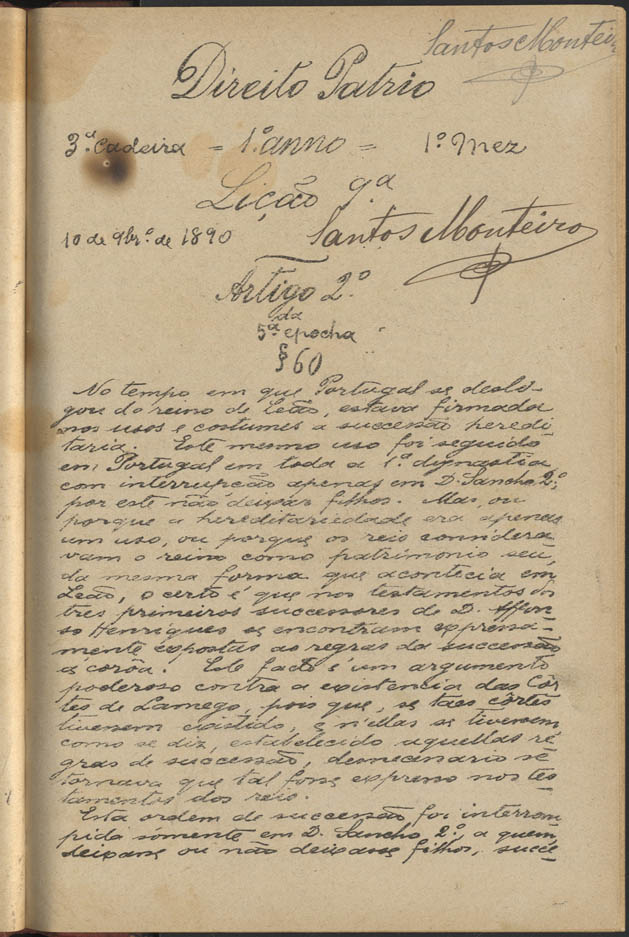 Santos Monteiro
Direito Patrio
3.ª Cadeira = 1.º anno = 1.º Mez
Lição 9.ª
10 de 9br.º de 1890 Santos Monteiro
Artigo 2.º
da
5.ª epocha
§ 60
No tempo, em que Portugal se deslo-
gou do reino de Leão, estava firmada
nos usos e costumes a successão heredi-
taria. Este mesmo uso foi seguido
em Portugal em toda a 1.ª dynastia,
com interrupção apenas em D. Sancho 2.º,
por este não deixar filhos. Mas, ou
porque a hereditariedade era apenas
um uso, ou porque os reis considera-
vam o reino como patrimonio seu,
da mesma forma que acontecia em
Leão, o certo é que nos testamentos dos
tres primeiros successores de D. Affon-
so Henriques se encontram expressa-
mente expostas as regras da successão
á corôa. Este facto é um argumento
poderoso contra a existencia das Côr-
tes de Lamego, pois que, se taes côrtes
tivessem existido, e n'ellas se tivessem
como se diz, estabelecido aquellas re-
gras de successão, desnecessario se
tornava que tal fosse expresso nos tes-
tamentos dos reis.
Esta ordem de successão foi interrom-
pida sómente em D. Sancho 2.º, a quem,
deixasse ou não deixasse filhos, succe-